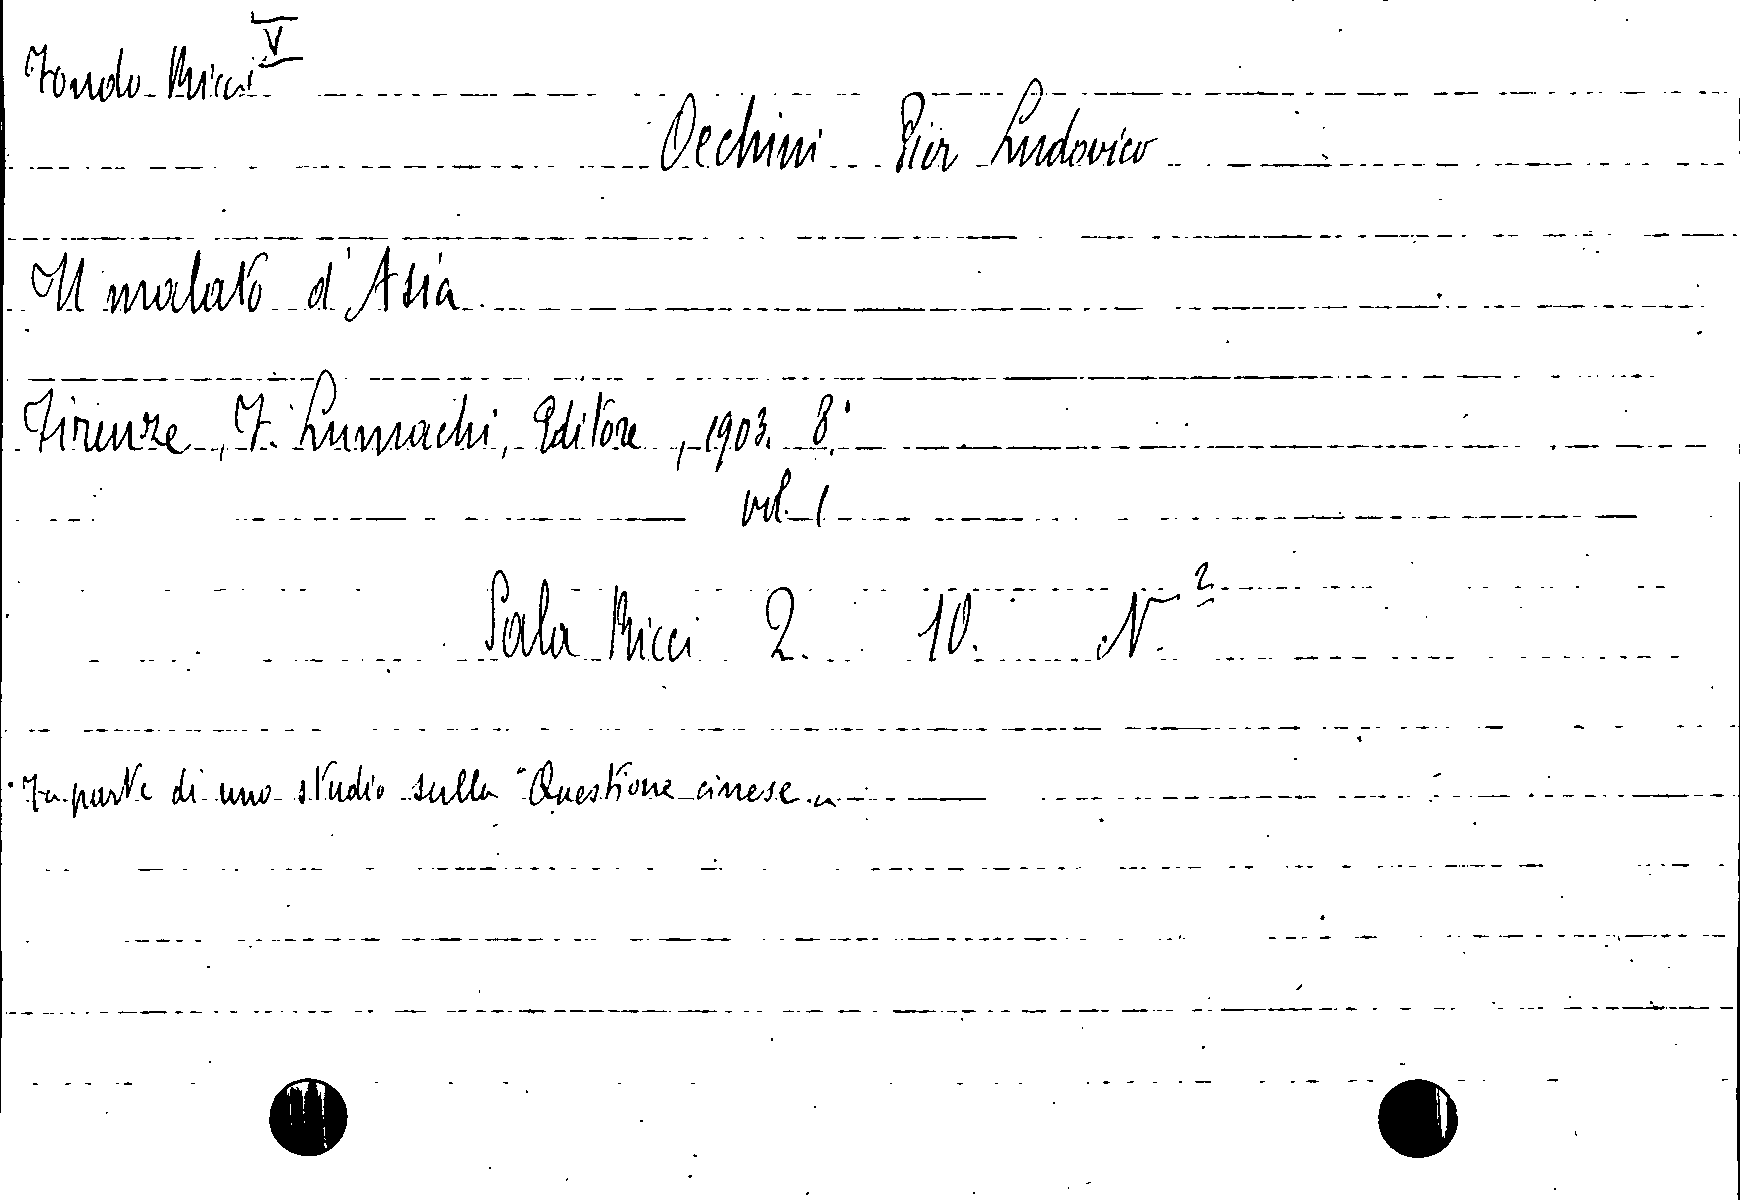 Fondo Ricci V
Occhini Pier Ludovico
Il malato d'Asia.
Firenze, F. Lumachi, Editore, 1903. 8.°
vol. 1
Sala Ricci 2. 10. N. 2
Fa parte di uno studio sulla "Questione cinese."